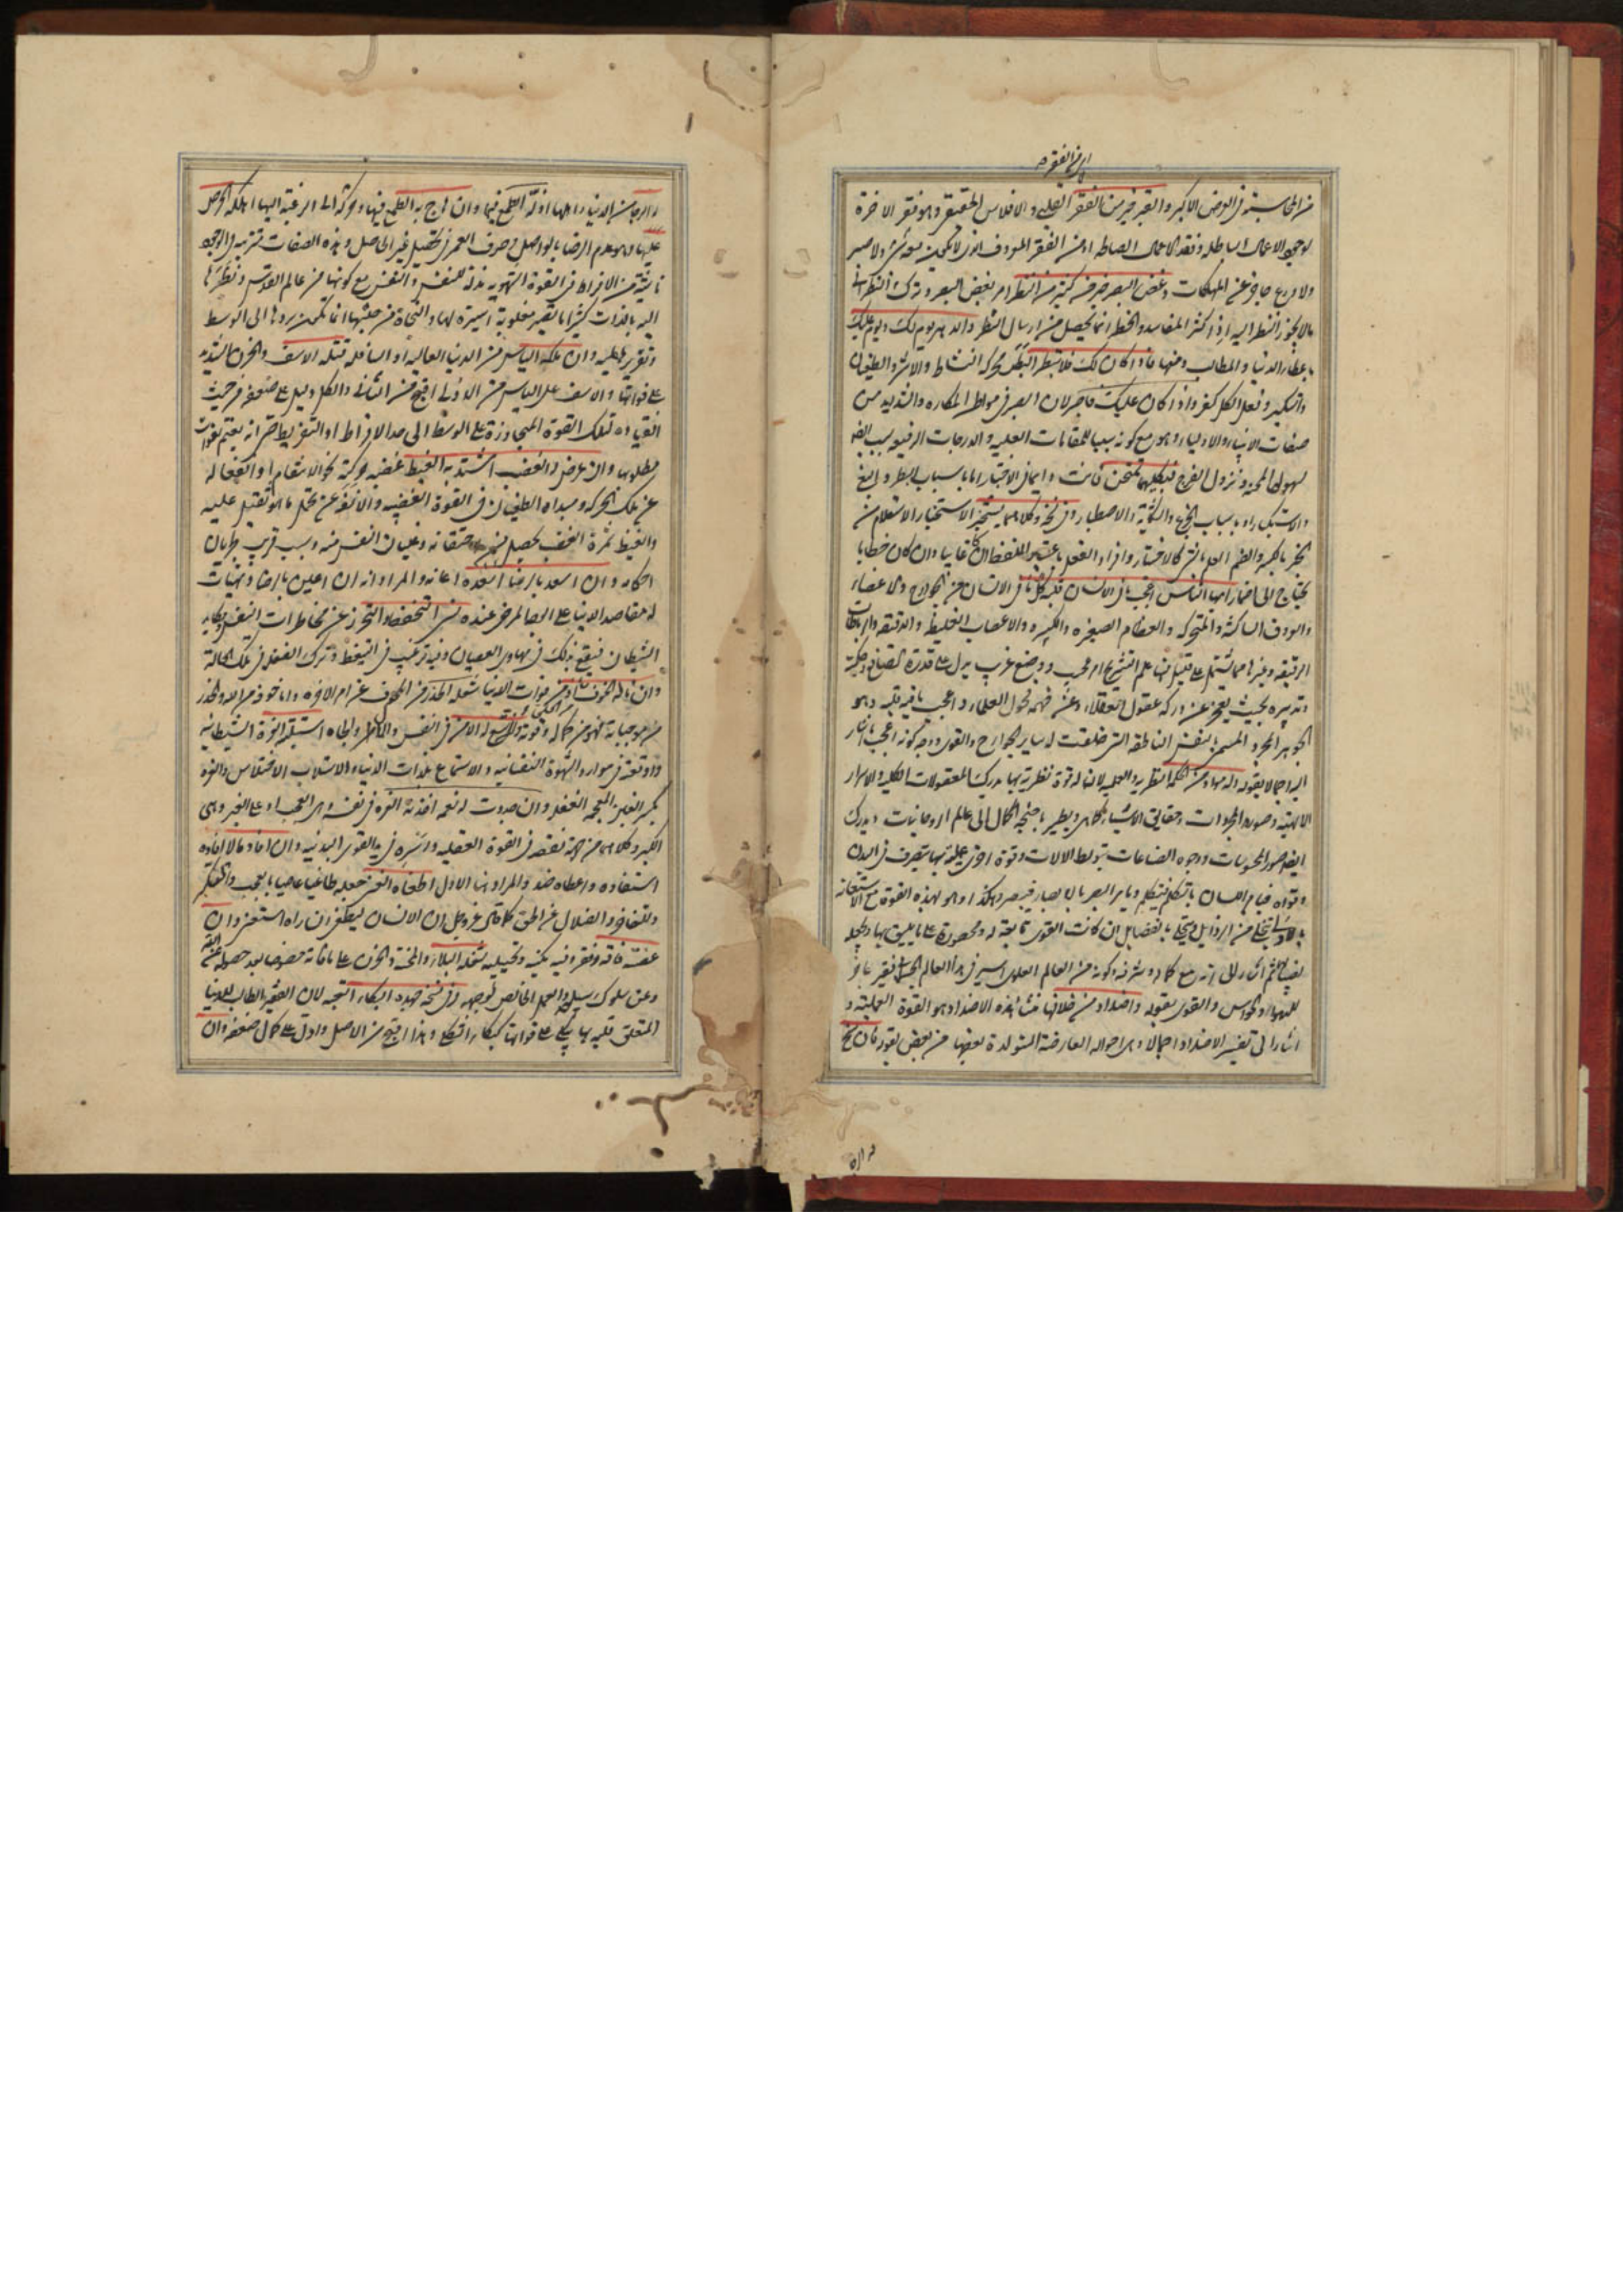 من المحاسبة في العرض الاكبر والقبر خير من الفقر القلبي والافلاس الحقيقي وهو فقر الاخرة
لوجود الاعمال الباطلة وفقد الاعمال الصالحة او من الفقر المعروف الذي لا يكون معه شكر ولا صبر
ولا ورع حاجز عن المهلكات وغض البصر خير من كثير من النظر امر بغض البصر وترك النظر الى
ما لا يجوز النظر اليه اذ اكثر المفاسد والخطر انما يحصل من ارسال النظر والدهر يوم لك ويوم عليك
باعطاء الدنيا والمطالب ومنعها فاذا كان لك فلا تبطر البطر محركة النشاط والاشر والطغيان
والتكبر وفعل الكل كفر واذا كان عليك فاصبر لان الصبر في مواطن المكاره والشدايد من
صفات الانبياء والاولياء وهو مع كونه سببا للمقامات العلية والدرجات الرفيعة سبب ايضا
لسهولة المحن ونزول الفرج فبكليهما تمتحن فانت في الاختبار اما باسباب البطر والبغي
والاستكبار او باسباب الجزع والشكاية والاصطبار وفي نسخة وكلاهما سيختبر الاستخبار الاستعلام من
الخبر بالكسر والضم العلم بالشيء كالاختبار وافراد الفعل باعتبار اللفظ وان كان غايبا وان كان خطابا
يحتاج الى اضمار ايها الناس اعجب ما في الانسان قلبه كل ما في الانسان من الجوارح والاعضاء
والعروق الساكنة والمتحركة والعظام الصغيرة والكبيرة والاعصاب الغليظة والدقيقة والرباطات
الرقيقة وغيرها مما يشتمل على قليل منها علم التشريح امر عجيب ووضع غريب يدل على قدرة الصانع وحكمته
وتدبيره بحيث يعجز عن دركه عقول العقلاء وعن فهمه فحول العلماء واعجب ما فيه قلبه وهو
الجوهر المجرد المسمى بالنفس الناطقة التي خلقت له ساير الجوارح والقوى ووجه كونه اعجب ما اشار
اليه اجمالا بقوله وله مواد من الحكمة النظرية والعملية لان له قوة نظرية بها يدرك المعقولات الكلية والاسرار
الالهية وصور المجردات وحقايق الاشياء كما هي ويطير باجنحة الكمال الى عالم الروحانيات ويدرك
ايضا صور المحسوسات ووجوه الصناعات بتوسط الالات وقوة اخرى عملية بها يتصرف في البدن
وقواه فيامر اللسان بالتكلم فيتكلم ويامر البصر بالابصار فيبصر وهكذا وهو بهذه القوة مع الاستعانة
بالاولى يتخلى من الرذايل ويتحلى بالفضايل ان كانت القوى تابعة له ومحصورة على ما يليق بها ويجعله
ثم اشار الى انه مع كماله وشرفه وكونه من العالم العلوي اسير في هذا العالم
للهواء والحواس والقوى بقوله واضداد من خلافها منشأ هذه الاضداد هو القوة العملية و
اشار الى تفسير الاضداد اجمالا وهي احواله العارضة المتولدة بعضها من بعض بقوله فان سنح
له الرجاء من الدنيا واهلها اذله الطمع فيها وان هاج به الطمع فيها وحركه الى الرغبة اليها اهلكه الحرص
عليها وهو عدم الرضا بالواصل وصرف العمر في تحصيل غير الحاصل وهذه الصفات
ناشية من الافراط في القوة الشهوية مذلة للنفس والنفس مع كونها من عالم القدس ونظرها
اليه بالذات كثيرا ما تصير مغلوبة اسيرة لها والنجاة من خبثها انما يكون بردها الى الوسط
وتقريرها عليه وان ملكه الياس من الدنيا العالية او السافلة قتله الاسف والحزن الشديد
على فواتها والاسف على الياس من الاولى اقبح من الثاني والكل دليل على ضعفه من حيث
انقياده لتلك القوة المتجاوزة على الوسط الى حد الافراط او التفريط حتى انه يغتم بفوات
مطلوبها وان عرض له الغضب اشتد به الغيظ غضبه حركة نحو الانتقام او انفعاله
عن تلك الحركة ومبداه الطغيان في القوة الغضبية والانفة عن تحمل ما هو ثقيل عليه
والغيظ ثمرة الغضب يحصل من احتقانه وغليان النفس منه وسبب قريب لجريان
احكامه وان اسعد بالرضا اسعده اعانه والمراد انه ان اعين بالرضا وتهيأت
له مقاصد الدنيا على الوجه المرضي عنده نسي التحفظ والتحرز عن مخاطرات النفس ومكايد
الشيطان فيقع بذلك في مهاوي العصيان وفيه ترغيب في التيقظ وترك الغفلة في تلك الحالة
وان ناله الخوف من فوات الدنيا شغله الحذر من المخوف عن امر الاخرة واما خوف من الله والحذر
من موجباته فهو من كماله وقوته وان اتسع له الامن في النفس والمال والجاه استلبته الغرة الشيطانية
واوقعته في موارد الشهوة النفسانية والاستماع بلذات الدنيا والاستلاب الاختلاس والغرة
بكسر الغين المعجمة الغفلة وان جددت له نعمة اخذته العزة في نفسه وهي العجب او على الغير وهي
الكبر وكلاهما من نقصه في القوة العقلية وان افاد مالا افاده
استفاده واعطاه ضد والمراد هنا الاول اطغاه الغنى جعله طاغيا عاصيا بالعجب والتكبر
والتفاخر والضلال عن الحق كما قال عز وجل ان الانسان ليطغى ان راه استغنى وان
عضته فاقة وفقر شغله البلاء والمحنة والحزن على ما فاته خصوصا بعد حصوله
وعن سلوك سبيله والعمل الخالص لوجهه وفي نسخة جهده البكاء لان الفقير الطالب للدنيا
المتعلق قلبه بها يبكي على فواتها كبكاء الثكلى وهذا اقبح من الاصل وادل على كمال ضعفه وان